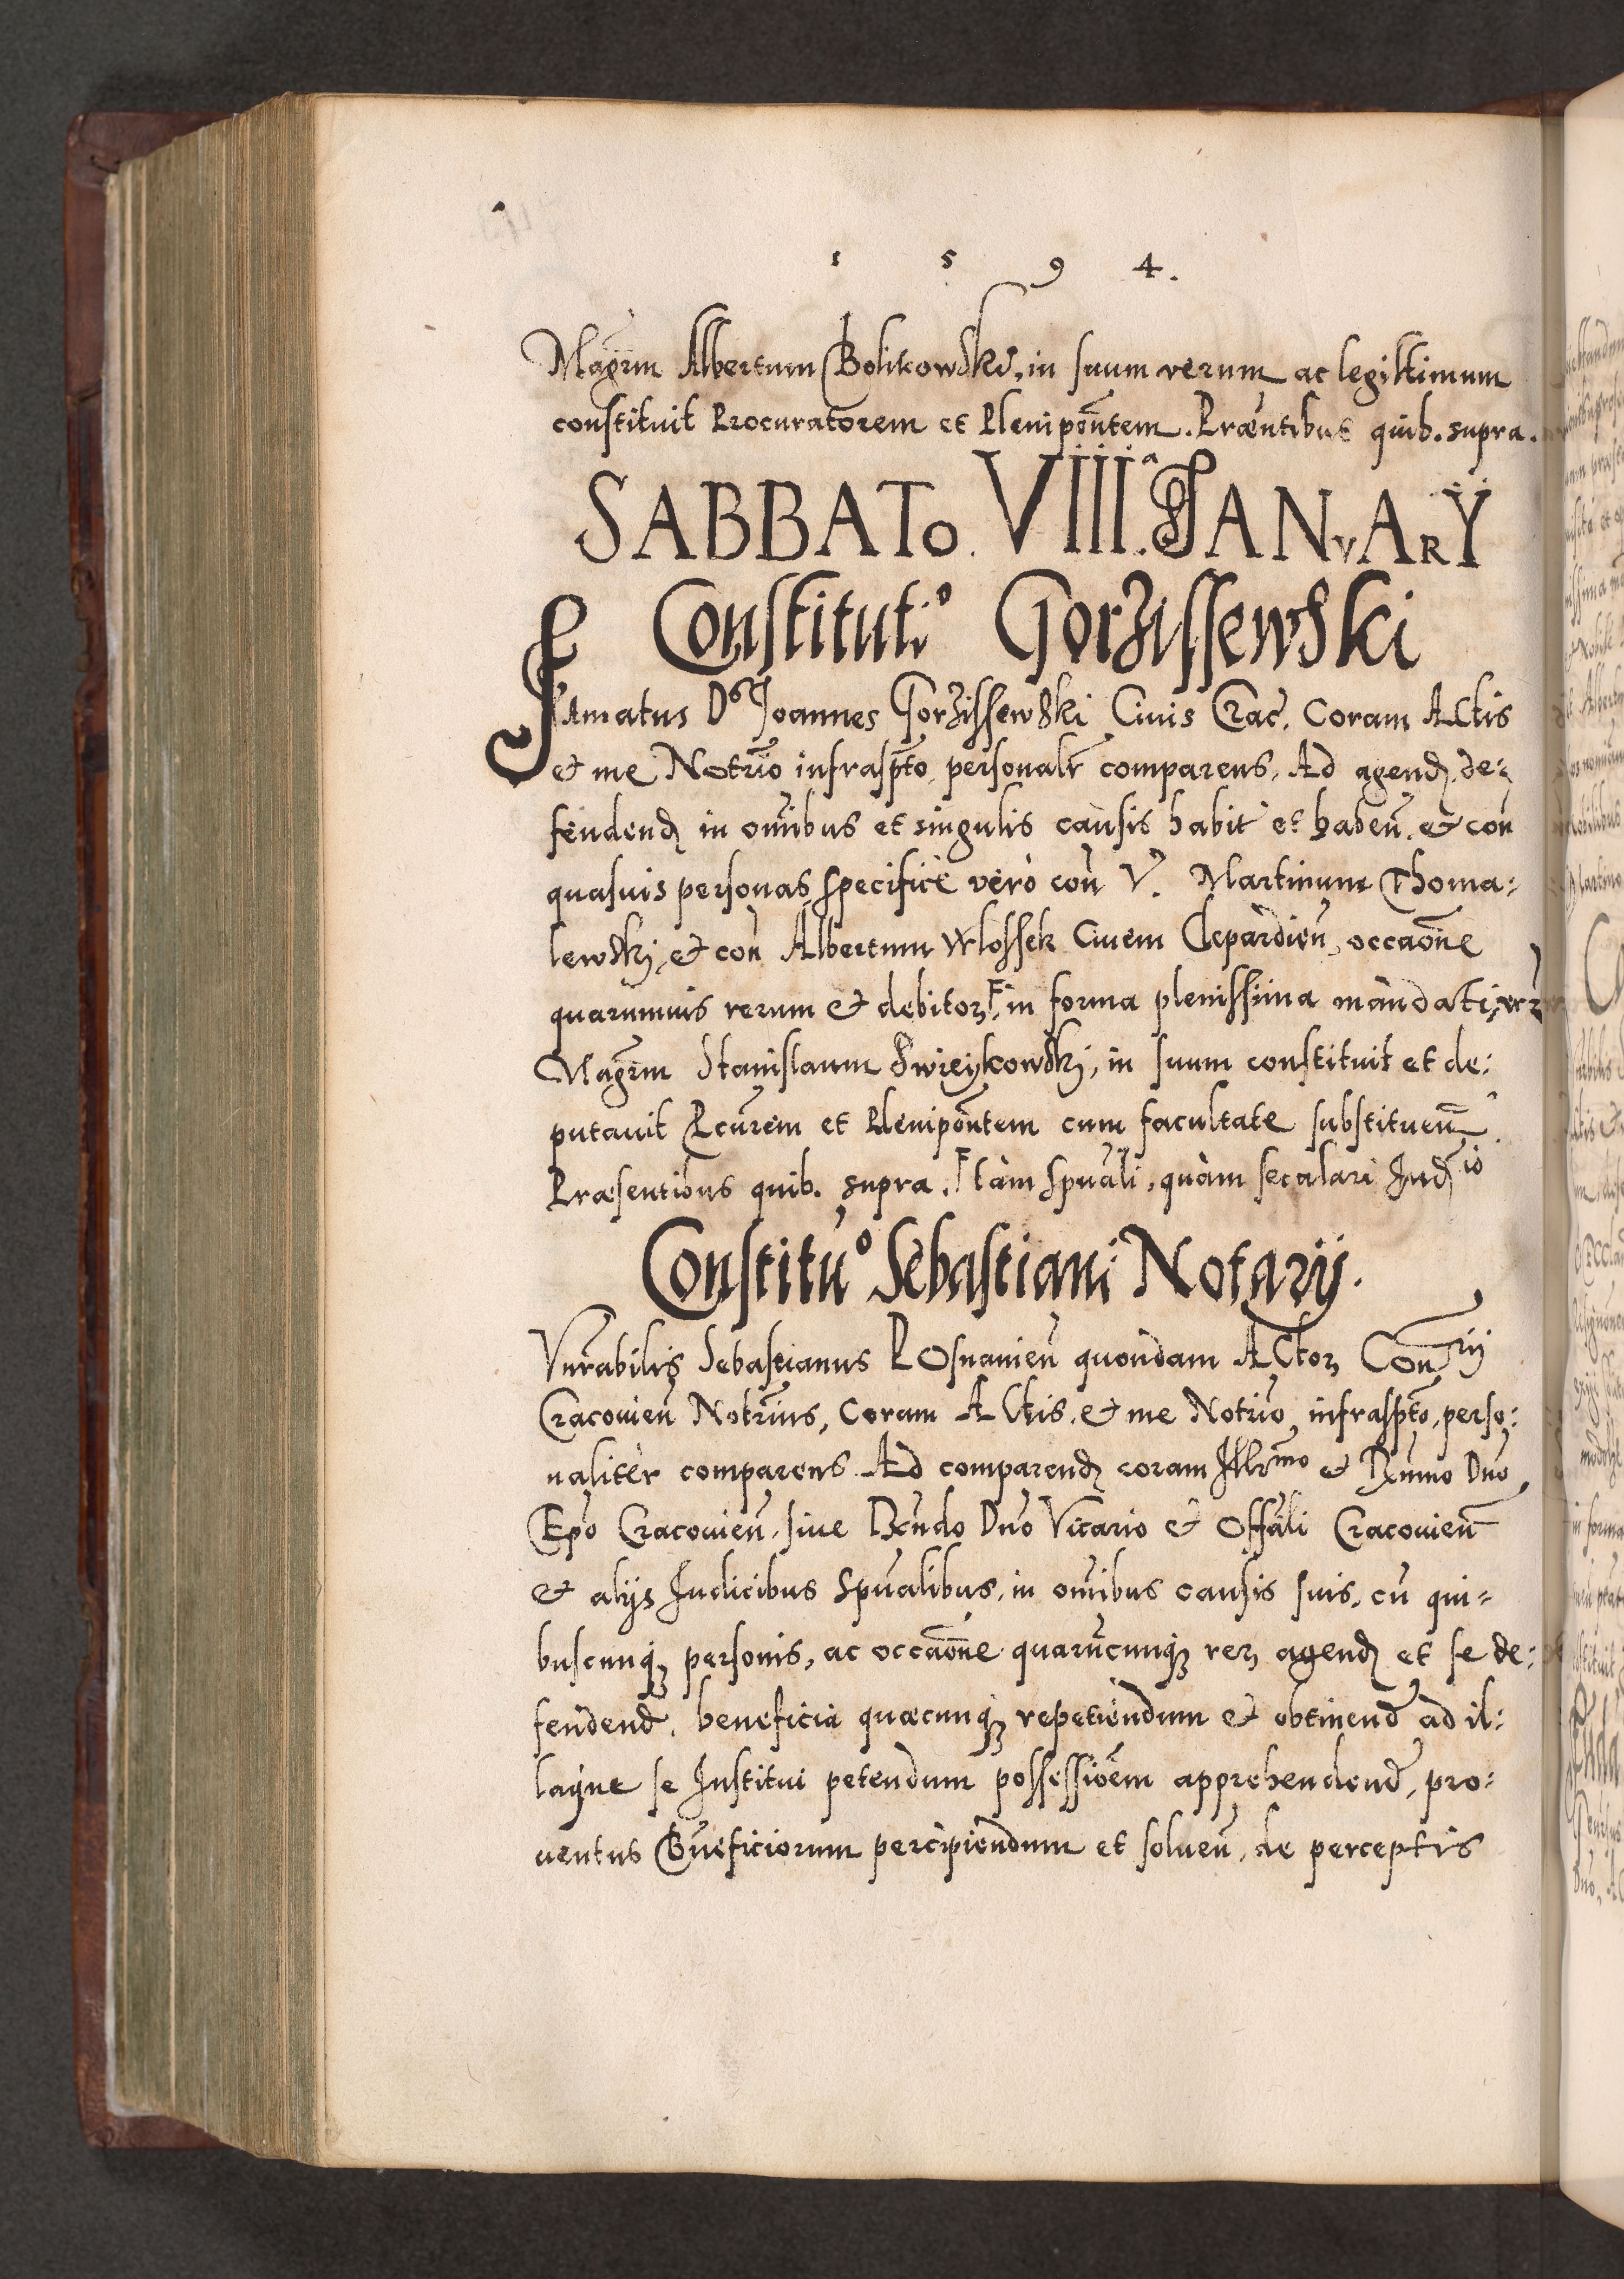 1 5 9 4.
Magrm Albertum Bolikowski, in suum verum ac legittimum
constituit Procuratorem et Plenipontem. Praentibus quib. supra.
SABBATO. VIII.a JANuARY
Constituti.o Gorzissewski
Famatus D.s Joannes Gorzissewski Ciuis Crac. Coram Actis
et me Notrio infraspto personalr comparens, Ad agend. de:
fendend in omibus et singulis causis habit et haben. et con
quasuis personas specificè verò con V. Martinum Thoma:
lewskj, et con Albertum Wlossek Ciuem Clepardien, occaone
quarumuis rerum et debitor, in forma plenissima mandati,
Magrm Stanislaum Swieykowskj, in suum constituit et de:
putauit Pcurem et Plenipontem cum facultate substituen
Praesentibus quib. supra. tàm spuali, quàm secalari Judio
Constituo Sebastiani Notarij.
Vnrabilis Sebastianus Posnanien quondam Actor Conrij
Cracouien Notrius, Coram Actis. et me Notrio infraspto, perso:
naliter comparens. Ad comparend coram Illrmo et Rxmo Dno
Epo Cracouien, siue Rndo Dno Vicario et Offali Cracouien
et alijs Judicibus spualibus, in omibus causis suis, cu qui=
buscunq personis, ac occaone quarucunq rer agend et se de:
fendend. beneficia quaecunq repetiendum et obtinend ad il:
laque se Institui petendum possessioem apprehendend, pro:
uentus Bneficiorum percipiendum et soluen, de perceptis